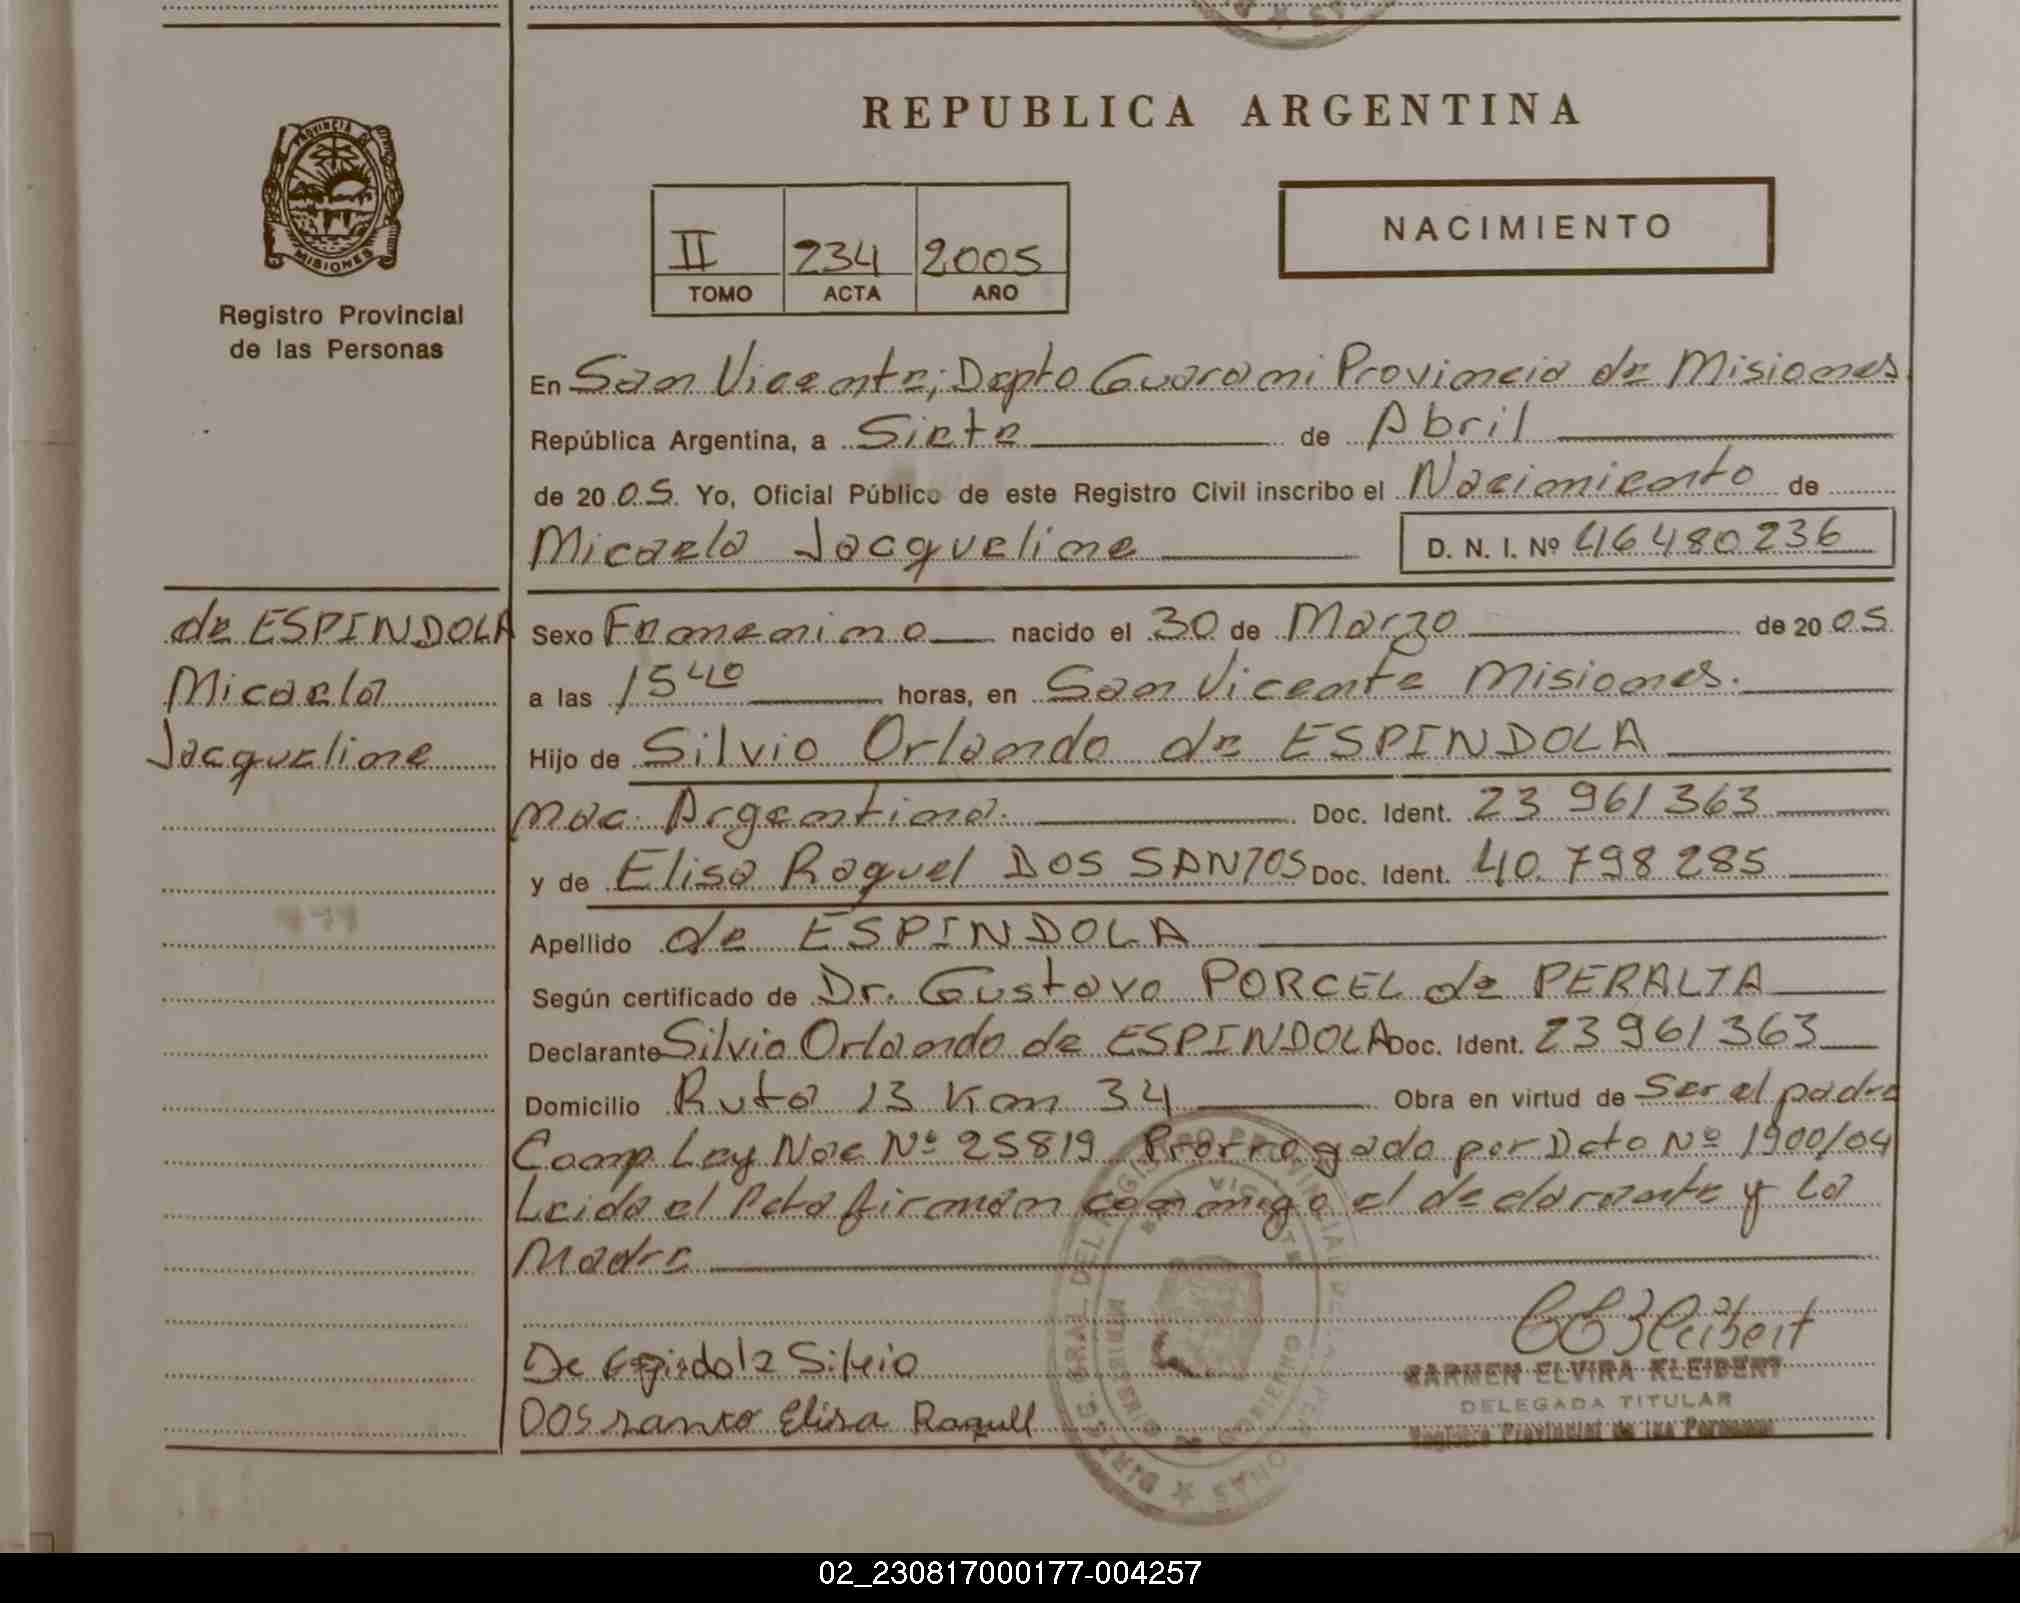 REPUBLICA ARGENTINA
PROVINCIA DE
MISIONES
Registro Provincial
de las Personas
II 234 2005
TOMO ACTA AÑO
NACIMIENTO
En San Vicente; Depto Guarani Provincia de Misiones
República Argentina, a Siete de Abril
de 20 05. Yo, Oficial Público de este Registro Civil inscribo el Nacimiento de
Micaela Jacqueline D. N. I. Nº 46480236
de ESPINDOLA
Micaela
Jacqueline
Sexo Femenino nacido el 30 de Marzo de 20 05
a las 15 40 horas, en San Vicente Misiones.
Hijo de Silvio Orlando de ESPINDOLA
nac. Argentina. Doc. Ident. 23 961 363
y de Elisa Raquel DOS SANTOS Doc. Ident. 40.798 285
Apellido de ESPINDOLA
Según certificado de Dr. Gustavo PORCEL de PERALTA
Declarante Silvio Orlando de ESPINDOLA Doc. Ident. 23 961 363
Domicilio Ruta 13 Km 34 Obra en virtud de Ser el padre
Comp Ley Nac Nº 25819 Prorrogado por Dcto Nº 1900/04
Leida el Acta firman conmigo el declarante y la
Madre
De Espindola Silvio
DOS santo Elisa Raquell
CEKleibert
CARMEN ELVIRA KLEIBERT
DELEGADA TITULAR
Registro Provincial de las Personas
02_230817000177-004257